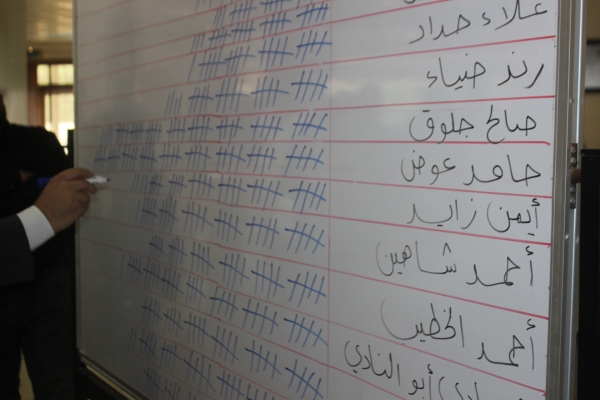 علاء حداد
رند ضياء
صالح جلوق
حامد عوض
أيمن زايد
أحمد شاهين
أحمد الخطيب
أبو النادي